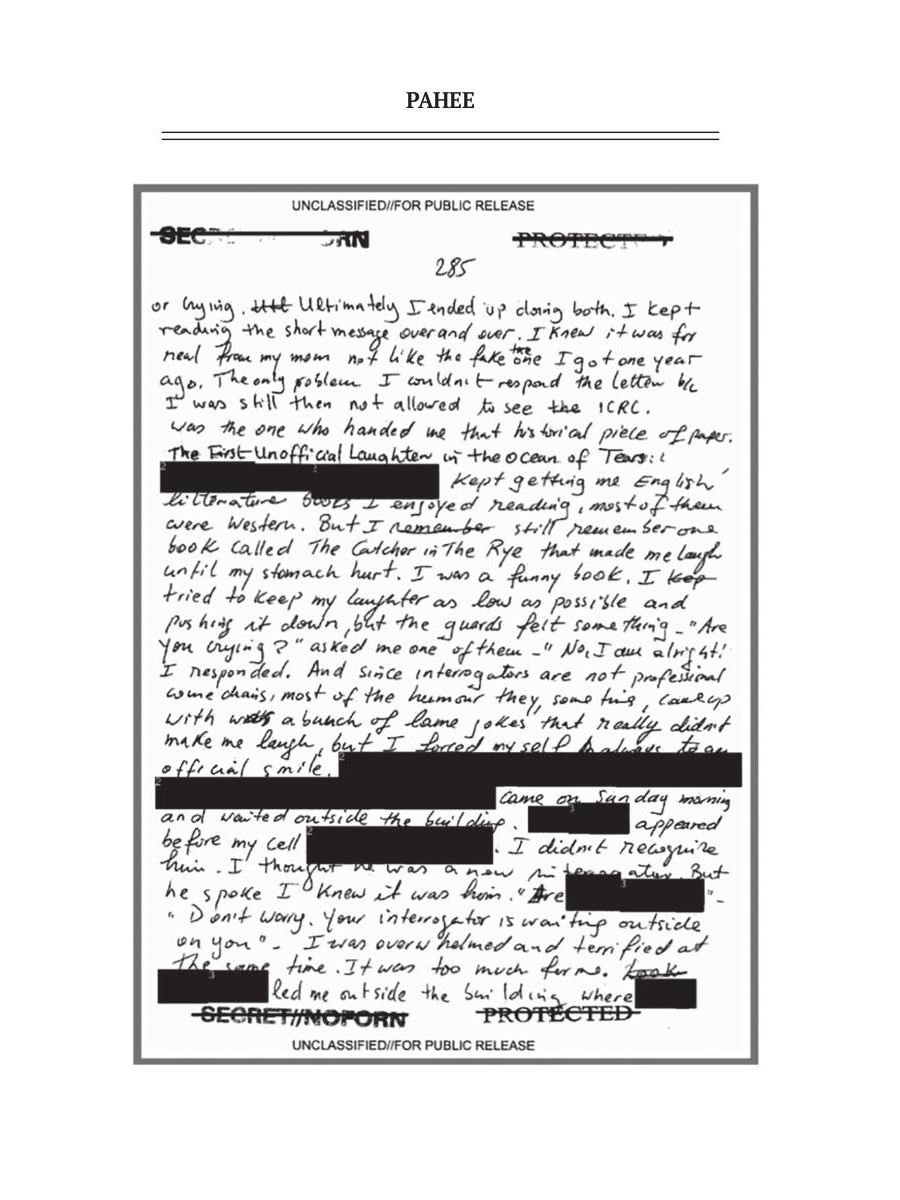 PAHEE
UNCLASSIFIED//FOR PUBLIC RELEASE
PROTECTED
285
or crying. Ultimately I ended up doing both. I kept
reading the short message over and over. I knew it was for
real from my mom not like the fake the one I got one year
ago. The only problem I couldn't respond the letter b/c
I was still then not allowed to see the ICRC.
was the one who handed me that historical piece of paper.
The First Unofficial Laughter in the ocean of Tears:
Kept getting me English
litterature books I enjoyed reading, most of them
were Western. But I remember still remember one
book called The Catcher in The Rye that made me laugh
until my stomach hurt. I was a funny book. I kep
tried to keep my laughter as low as possible and
pushing it down, but the guards felt something - "Are
you crying?" asked me one of them - "No, I am alright!
I responded. And since interrogators are not professional
most of the humour they, some
with a bunch of lame jokes that really didn't
make me laugh, but I forced myself always to an
official smile.
came on Sunday morning
and waited outside the building. appeared
before my cell . I didn't recognize
him. I thought he was a new interrogator. But
he spoke I knew it was him. "Are "-
"Don't worry. Your interrogator is waiting outside
on you" - I was overwhelmed and terrified at
the same time. It was too much for me. took
led me outside the building where
SECRET//NOFORN PROTECTED
UNCLASSIFIED//FOR PUBLIC RELEASE